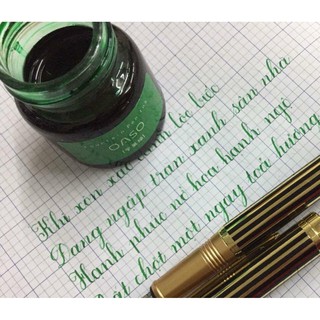 OASO
Khi xôn xao cành lộc biếc
Đang ngập tràn xanh sân nhà
Hạnh phúc nở hoa hạnh ngộ
chợt một ngày toả hương